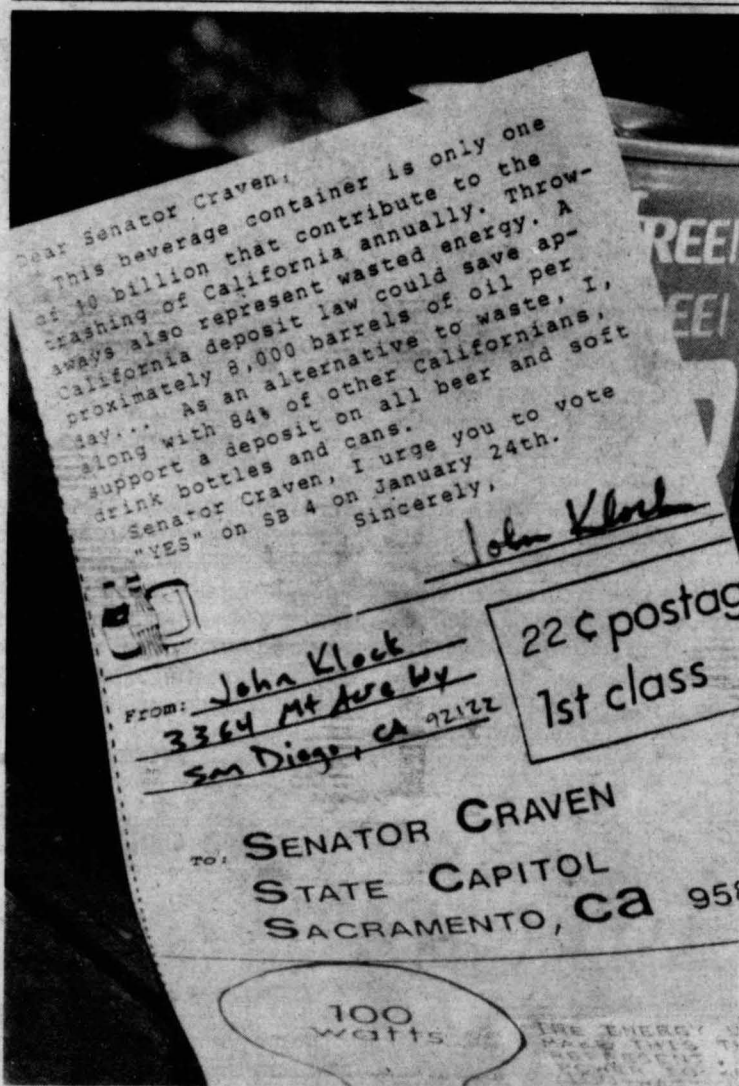 Dear Senator Craven,
This beverage container is only one
of 10 billion that contribute to the
trashing of California annually. Throw-
aways also represent wasted energy. A
California deposit law could save ap-
proximately 8,000 barrels of oil per
day... As an alternative to waste, I,
along with 84% of other Californians,
support a deposit on all beer and soft
drink bottles and cans.
Senator Craven, I urge you to vote
"YES" on SB 4 on January 24th.
Sincerely,
John Klock
From: John Klock
3364 Mt
San Diego, CA 92122
22¢ postag
1st class
To: SENATOR CRAVEN
STATE CAPITOL
SACRAMENTO, Ca 958
100
watts
THE ENERGY
MAKE THIS
REPRESENT
REEI
EEI